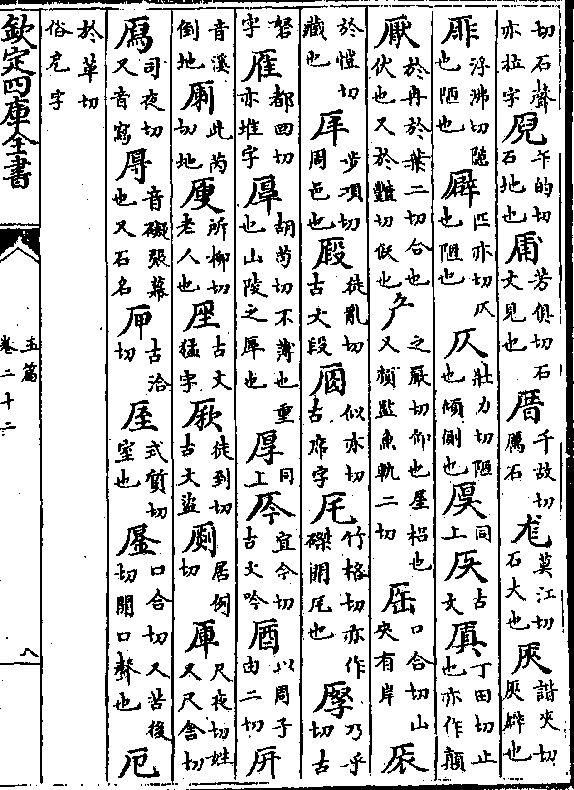 切石聲亦拉字 午的切石地也 芳俱切石文見也 厝 千故切厲石 厖 莫江切石大也 諧夾切
厞 浮沸切隱也陋也 匹亦切仄也陋也 仄 壯力切陋也傾側也 同上 古文 丁田切止也亦作顛
厭 於冉於葉二切合也伏也又於艷切 厃 之嚴切仰也屋梠也又顏監魚軌二切 口合切山夾有岸
於愷切藏也 步項切周邑也 徒亂切古文段 似亦切古席字 厇 竹格切亦作磔開厇也 乃乎切古
砮字 都回切亦堆字 胡苟切不薄也重也山陵之厚也 厚 同上 宜今切古文吟 以周子由二切
音溪倒地 此芮切地 所柳切老人也 古文猛字 徒到切古文盜 居例切 厙 尺夜切姓又尺舍切
司夜切又音寫 音礙張幕也又石名 古洽切 厔 式質切室也 口合切又苦後切閉口聲也 厄
於革切俗戹字
欽定四庫全書
玉篇
卷二十二
八